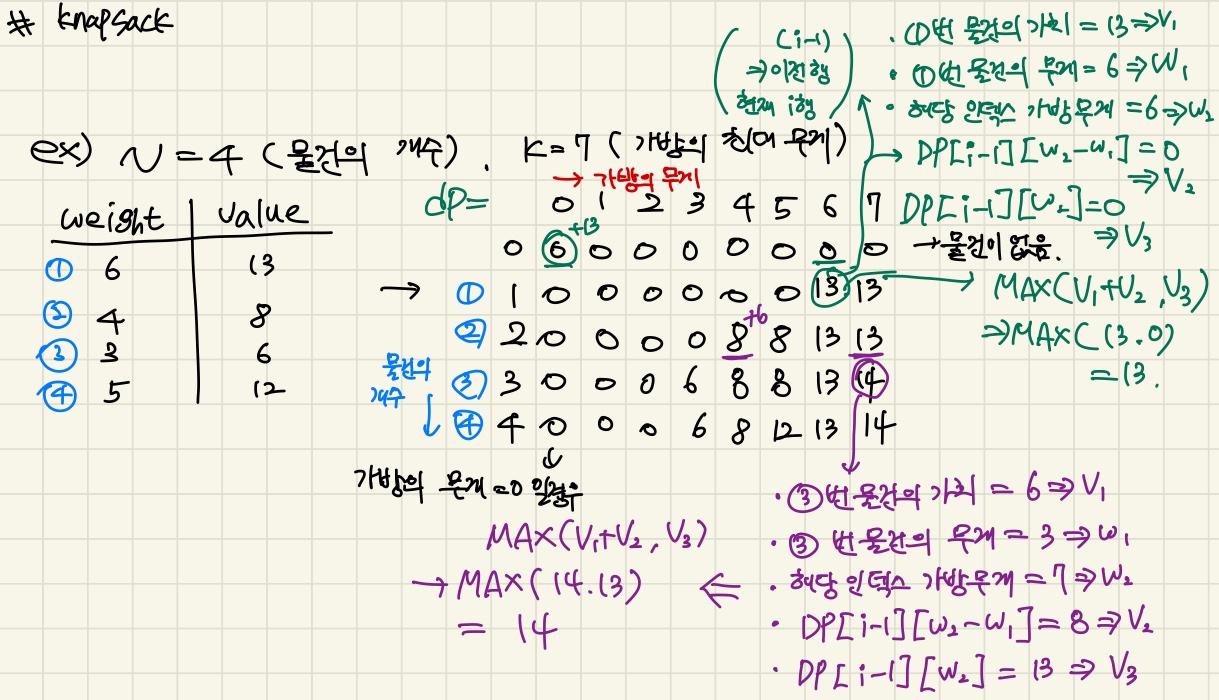 # knapsack
ex) N = 4 ( 물건의 개수 ) . K = 7 ( 가방의 최대 무게 )
weight | value
① 6 13
② 4 8
③ 3 6
④ 5 12
→ 가방의 무게
dp=
0 1 2 3 4 5 6 7
+13
0 0 0 0 0 0 0 0 0 → 물건이 없음.
→ ① 1 0 0 0 0 0 0 13 13
+6
② 2 0 0 0 0 8 8 13 13
③ 3 0 0 0 6 8 8 13 14
④ 4 0 0 0 6 8 12 13 14
물건의
개수
↓
↓
가방의 무게 = 0 일 경우
(i-1)
⇒ 이전행
현재 i행
· ①번 물건의 가치 = 13 ⇒ V₁
· ①번 물건의 무게 = 6 ⇒ W₁
· 해당 인덱스 가방무게 = 6 ⇒ W₂
→ DP[i-1][W₂-W₁] = 0
⇒ V₂
DP[i-1][W₂] = 0
⇒ V₃
MAX(V₁+V₂ , V₃)
⇒ MAX(13.0)
= 13.
· ③번 물건의 가치 = 6 ⇒ V₁
· ③번 물건의 무게 = 3 ⇒ W₁
· 해당 인덱스 가방무게 = 7 ⇒ W₂
· DP[i-1][W₂-W₁] = 8 ⇒ V₂
· DP[i-1][W₂] = 13 ⇒ V₃
⇐
MAX(V₁+V₂ , V₃)
→ MAX(14.13)
= 14